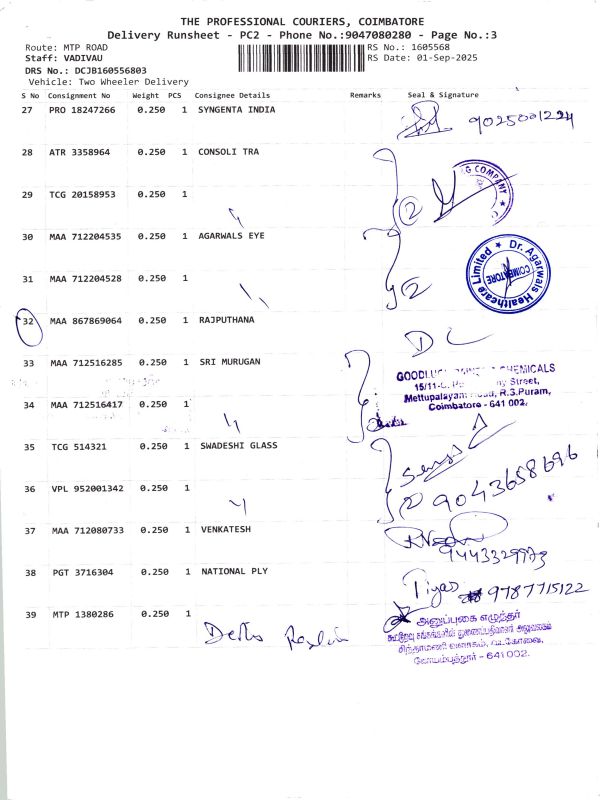 THE PROFESSIONAL COURIERS, COIMBATORE
Delivery Runsheet - PC2 - Phone No.:9047080280 - Page No.:3
Route: MTP ROAD
RS No.: 1605568
Staff: VADIVAU
RS Date: 01-Sep-2025
DRS No.: DCJB160556803
Vehicle: Two Wheeler Delivery
S No Consignment No Weight PCS Consignee Details Remarks Seal & Signature
27 PRO 18247266 0.250 1 SYNGENTA INDIA 9025001224
28 ATR 3358964 0.250 1 CONSOLI TRA
G COMPANY
29 TCG 20158953 0.250 1
2
30 MAA 712204535 0.250 1 AGARWALS EYE
Dr. Agarwals Healthcare Limited
COIMBATORE
31 MAA 712204528 0.250 1
2
32 MAA 867869064 0.250 1 RAJPUTHANA
DC
33 MAA 712516285 0.250 1 SRI MURUGAN
CHEMICALS
Street,
Mettupalayam Road, R.S.Puram,
Coimbatore - 641 002.
34 MAA 712516417 0.250 1
35 TCG 514321 0.250 1 SWADESHI GLASS
36 VPL 952001342 0.250 1
2 9043658696
37 MAA 712080733 0.250 1 VENKATESH
9443329973
38 PGT 3716304 0.250 1 NATIONAL PLY
9787715122
39 MTP 1380286 0.250 1
அனுப்புகை எழுத்தர்
கோயம்புத்தூர் - 641 002.